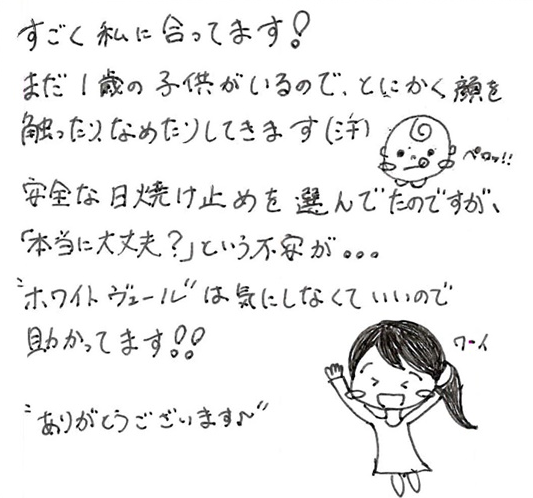 すごく私に合ってます!
まだ1歳の子供がいるので、とにかく顔を
触ったり、なめたりしてきます(汗)
ペロッ!!
安全な日焼け止めを選んでたのですが、
「本当に大丈夫?」という不安が...
"ホワイトヴェール"は気にしなくていいので
助かってます!!
ワーイ
"ありがとうございます♪"